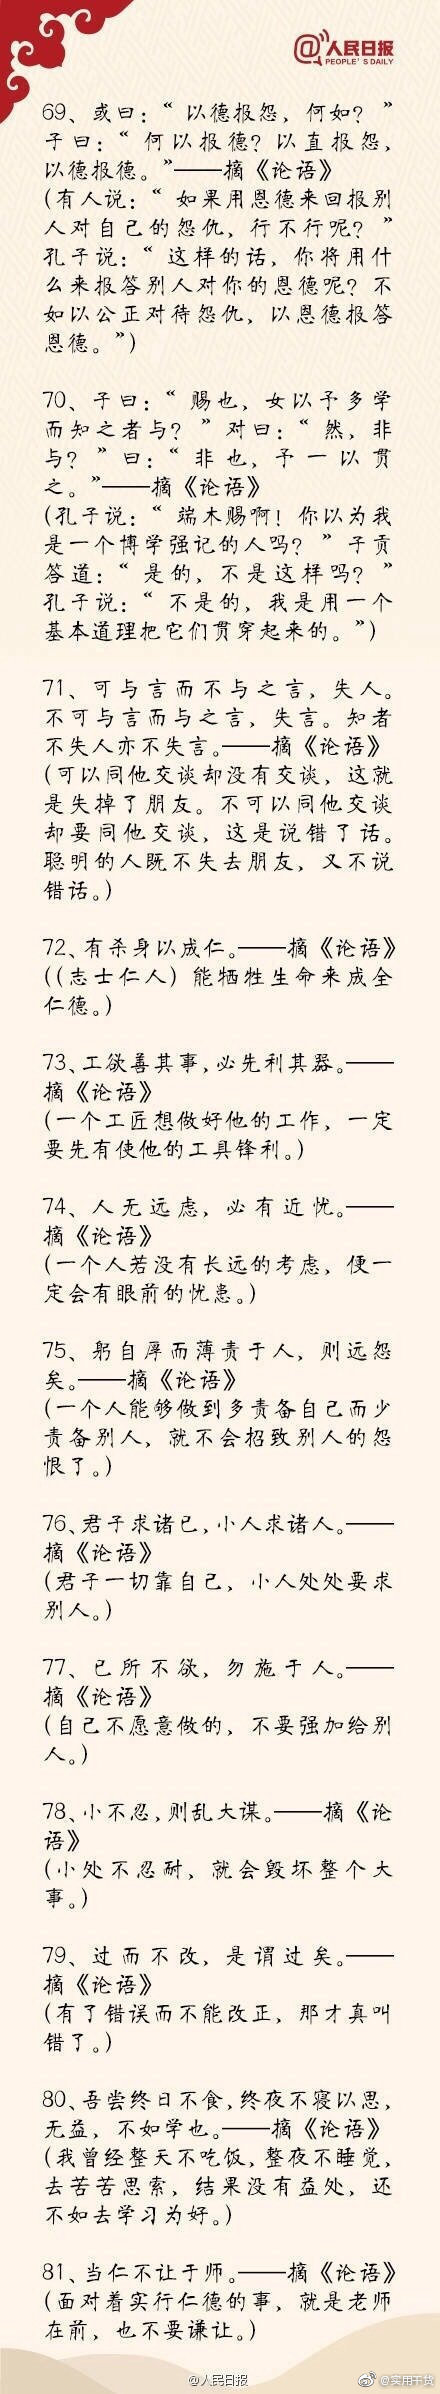 @人民日报
PEOPLE'S DAILY
69、或曰：“以德报怨，何如？”
子曰：“何以报德？以直报怨，
以德报德。”——摘《论语》
(有人说：“如果用恩德来回报别
人对自己的怨仇，行不行呢？”
孔子说：“这样的话，你将用什
么来报答别人对你的恩德呢？不
如以公正对待怨仇，以恩德报答
恩德。”)
70、子曰：“赐也，女以予多学
而知之者与？”对曰：“然，非
与？”曰：“非也，予一以贯
之。”——摘《论语》
(孔子说：“端木赐啊！你以为我
是一个博学强记的人吗？”子贡
答道：“是的，不是这样吗？”
孔子说：“不是的，我是用一个
基本道理把它们贯穿起来的。”)
71、可与言而不与之言，失人。
不可与言而与之言，失言。知者
不失人亦不失言。——摘《论语》
(可以同他交谈却没有交谈，这就
是失掉了朋友。不可以同他交谈
却要同他交谈，这是说错了话。
聪明的人既不失去朋友，又不说
错话。)
72、有杀身以成仁。——摘《论语》
((志士仁人）能牺牲生命来成全
仁德。)
73、工欲善其事，必先利其器。——
摘《论语》
(一个工匠想做好他的工作，一定
要先有使他的工具锋利。)
74、人无远虑，必有近忧。——
摘《论语》
(一个人若没有长远的考虑，便一
定会有眼前的忧患。)
75、躬自厚而薄责于人，则远怨
矣。——摘《论语》
(一个人能够做到多责备自己而少
责备别人，就不会招致别人的怨
恨了。)
76、君子求诸已，小人求诸人。——
摘《论语》
(君子一切靠自己，小人处处要求
别人。)
77、已所不欲，勿施于人。——
摘《论语》
(自己不愿意做的，不要强加给别
人。)
78、小不忍，则乱大谋。——摘《论
语》
(小处不忍耐，就会毁坏整个大
事。)
79、过而不改，是谓过矣。——
摘《论语》
(有了错误而不能改正，那才真叫
错了。)
80、吾尝终日不食，终夜不寝以思，
无益，不如学也。——摘《论语》
(我曾经整天不吃饭，整夜不睡觉，
去苦苦思索，结果没有益处，还
不如去学习为好。)
81、当仁不让于师。——摘《论语》
(面对着实行仁德的事，就是老师
在前，也不要谦让。)
@人民日报
@实用干货